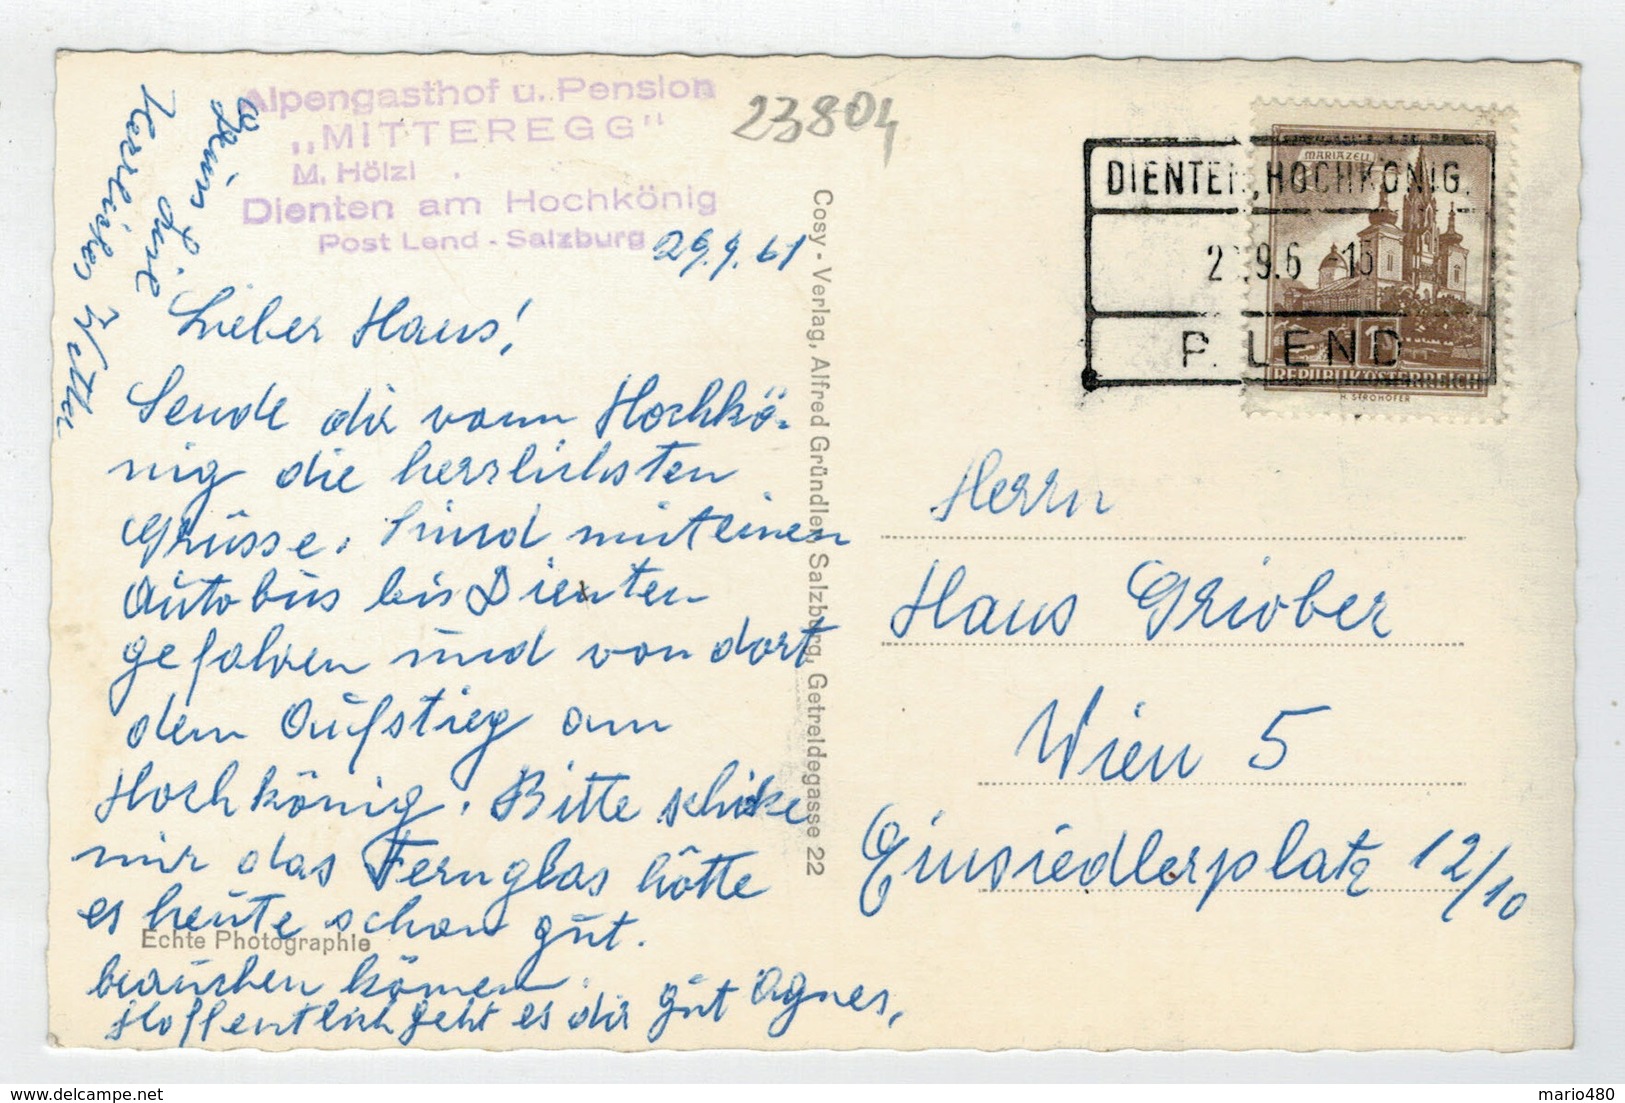 Alpengasthof u. Pension
„MITTEREGG"
M. Hölzl
Dienten am Hochkönig
Post Lend - Salzburg
23804
29.9.61
Lieber Hans!
Sende dir vom Hochkö-
nig die herrlichsten
Grüsse. Sind mit einen
Autobus bis Dienten
gefahren und von dort
dem Aufstieg am
Hochkönig. Bitte schicke
mir das Fernglas hätte
es heute schon gut.
brauchen können.
Hoffentlich geht es dir gut Agnes,
Herrliches Wetter
Echte Photographie
Cosy - Verlag, Alfred Gründler, Salzburg, Getreidegasse 22
DIENTEN, HOCHKÖNIG.
2 .9.6 -15
P. LEND
MARIAZELL
REPUBLIK ÖSTERREICH
H. STROHOFER
Herrn
Hans Griober
Wien 5
Einsiedlerplatz 12/10
delcampe.net
mario480